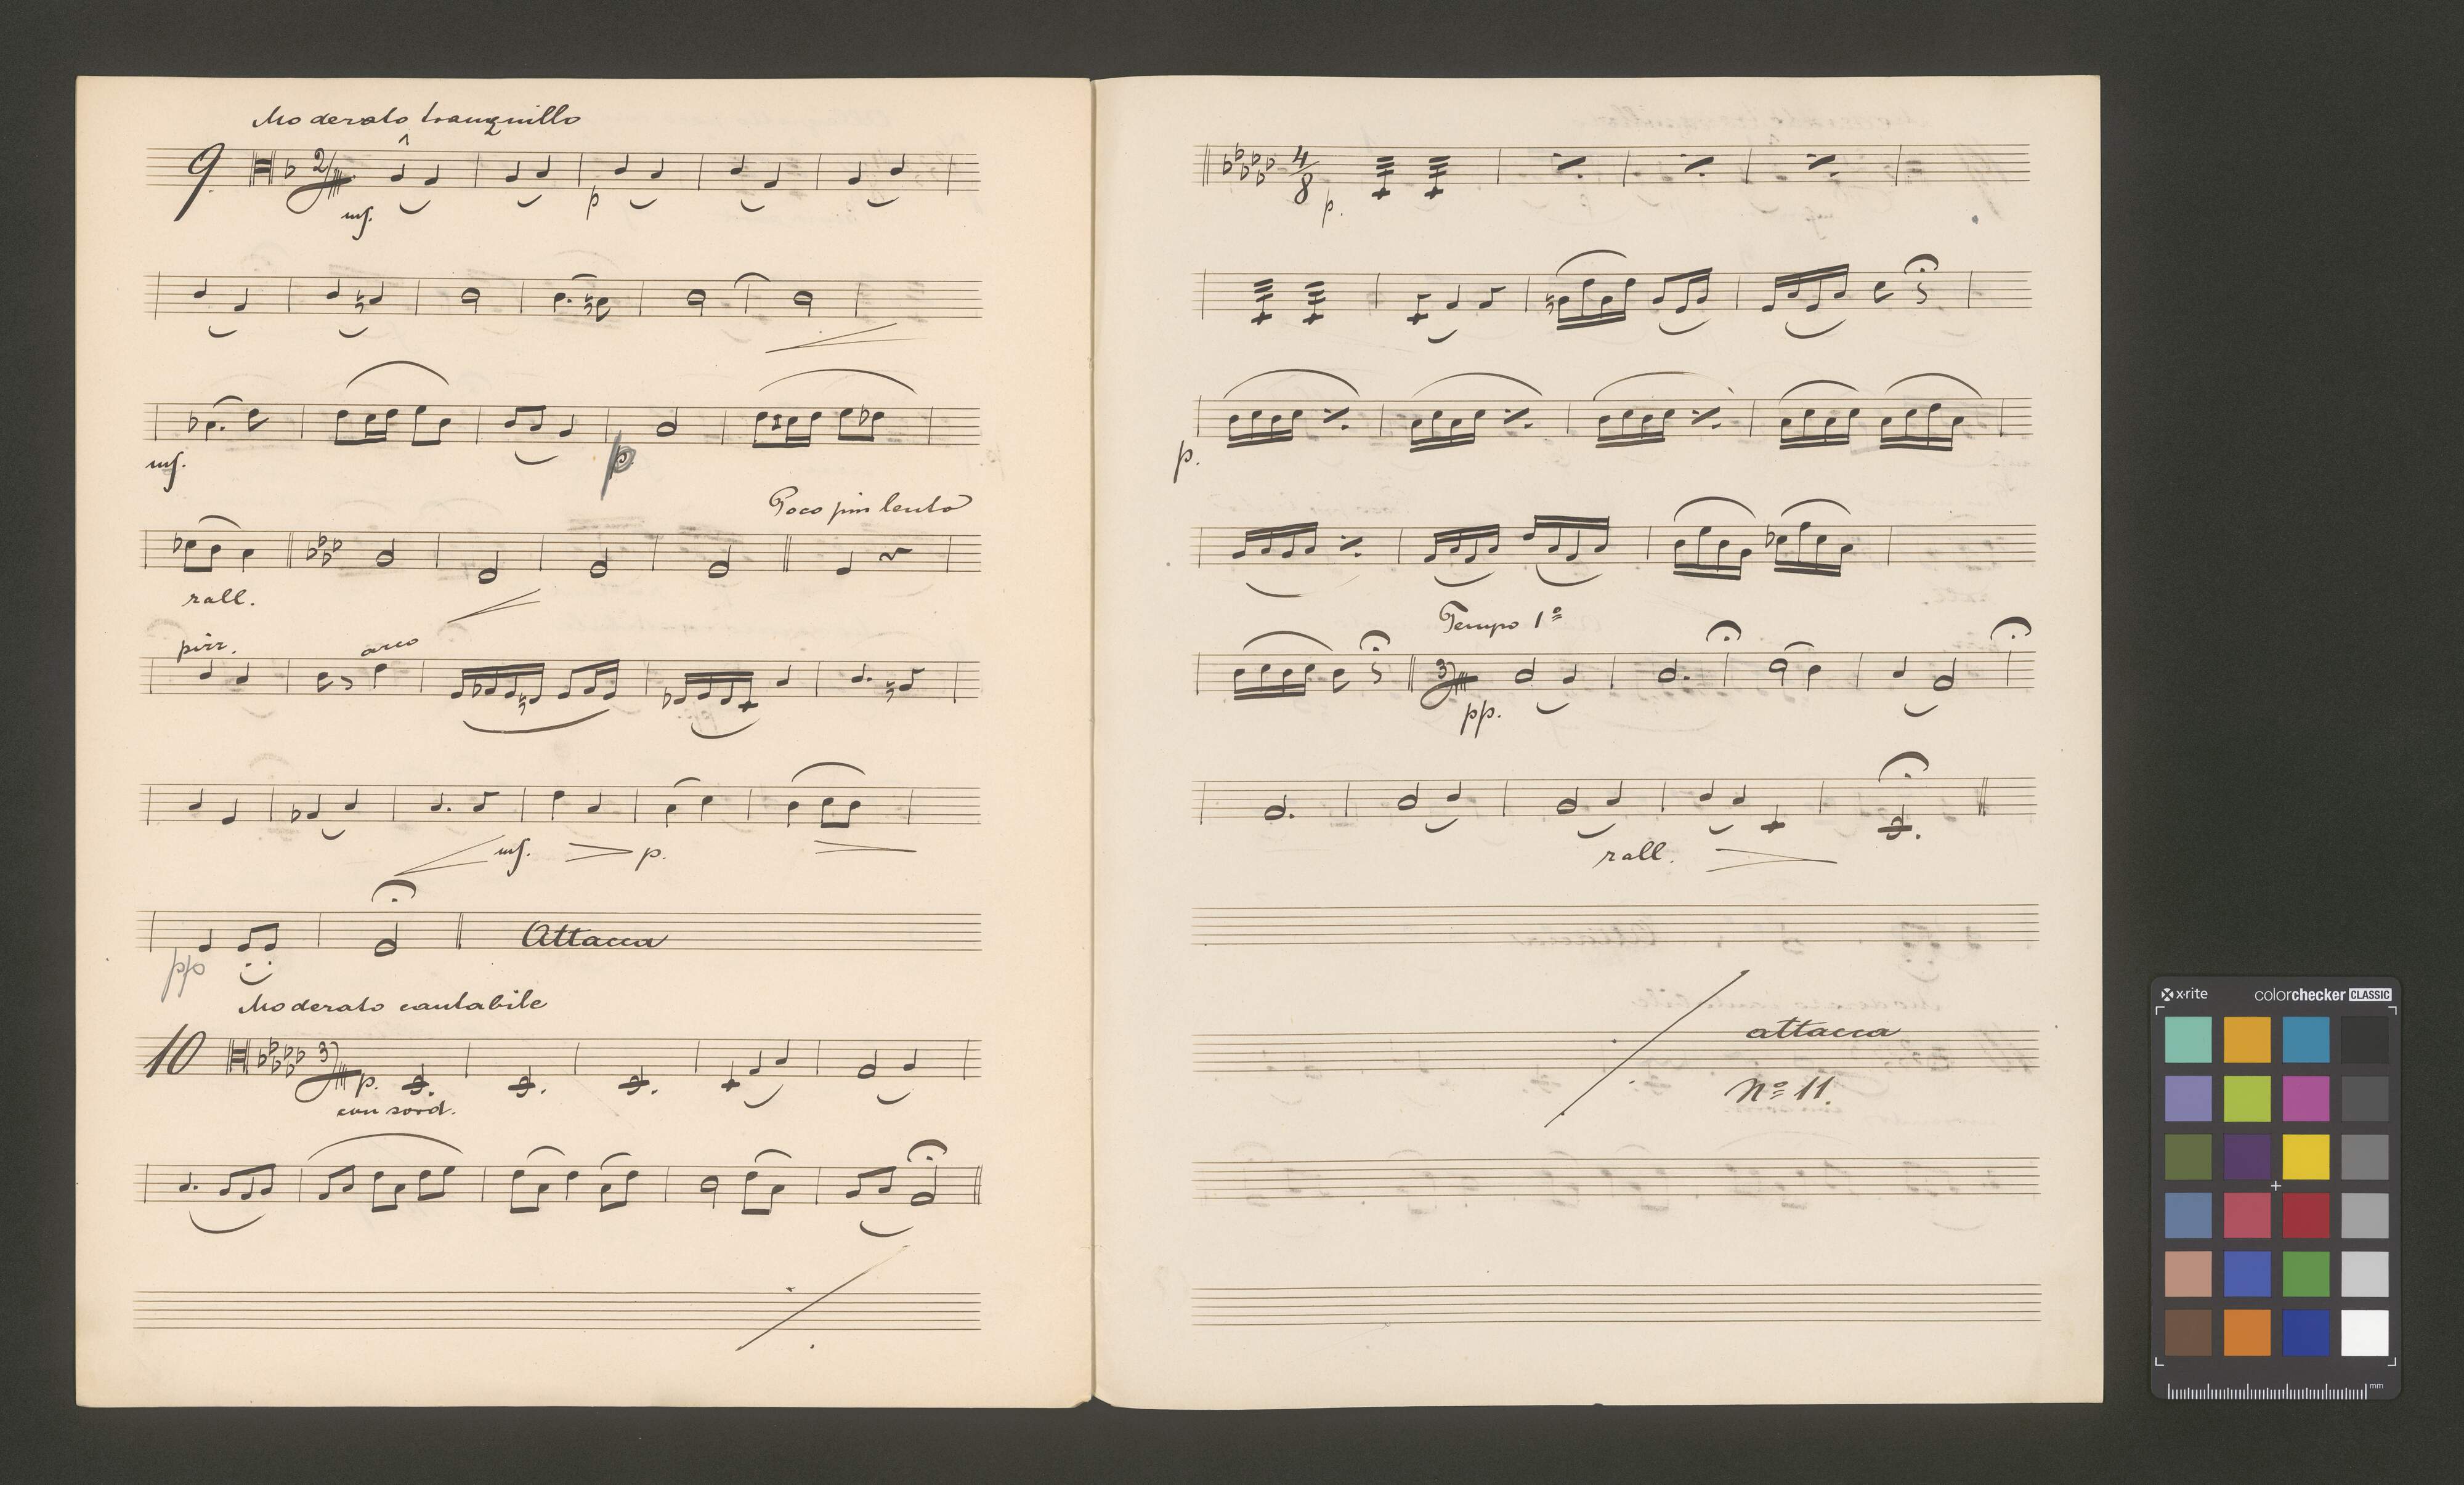 Moderato tranquillo
9. 2/4
mf. p
mf. p.
Poco piu lento
rall.
pizz. arco
mf. p.
Attacca
pp
Moderato cantabile
10 3/4 p.
con sord.
4/8
p.
p.
Tempo 1º
3/4
pp.
rall.
attacca
Nº 11.
x-rite colorchecker CLASSIC
mm